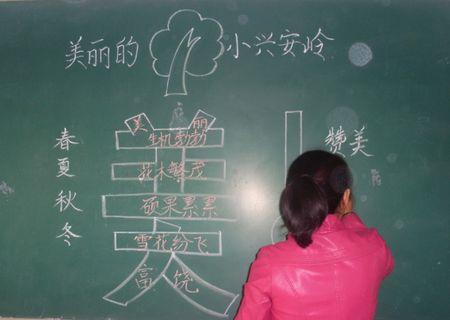 美丽的 小兴安岭
美 丽
生机勃勃
花木繁茂
硕果累累
雪花纷飞
富 饶
春夏秋冬
赞美